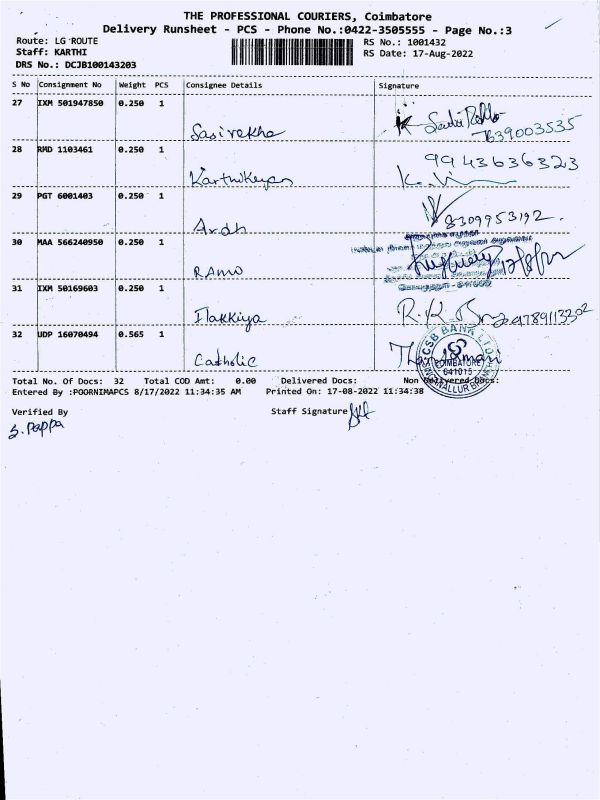 THE PROFESSIONAL COURIERS, Coimbatore
Delivery Runsheet - PCS - Phone No.:0422-3505555 - Page No.:3
Route: LG ROUTE
RS No.: 1001432
Staff: KARTHI
RS Date: 17-Aug-2022
DRS No.: DCJB100143203
S No Consignment No Weight PCS Consignee Details Signature
27 IXM 501947850 0.250 1
Sasirekha
7639003535
28 RMD 1103461 0.250 1
9943636323
Karthikeyan
29 PGT 6001403 0.250 1
8309953192.
Ardh
30 MAA 566240950 0.250 1
RAMO
31 IXM 50169603 0.250 1
Ilakkiya
R.K
32 UDP 16070494 0.565 1
CSB BANK LTD
COIMBATORE
641015
Catholic
Total No. Of Docs: 32 Total COD Amt: 0.00 Delivered Docs: Non Delivered Docs:
Entered By :POORNIMAPCS 8/17/2022 11:34:35 AM Printed On: 17-08-2022 11:34:38
Verified By
Staff Signature
S. Pappa